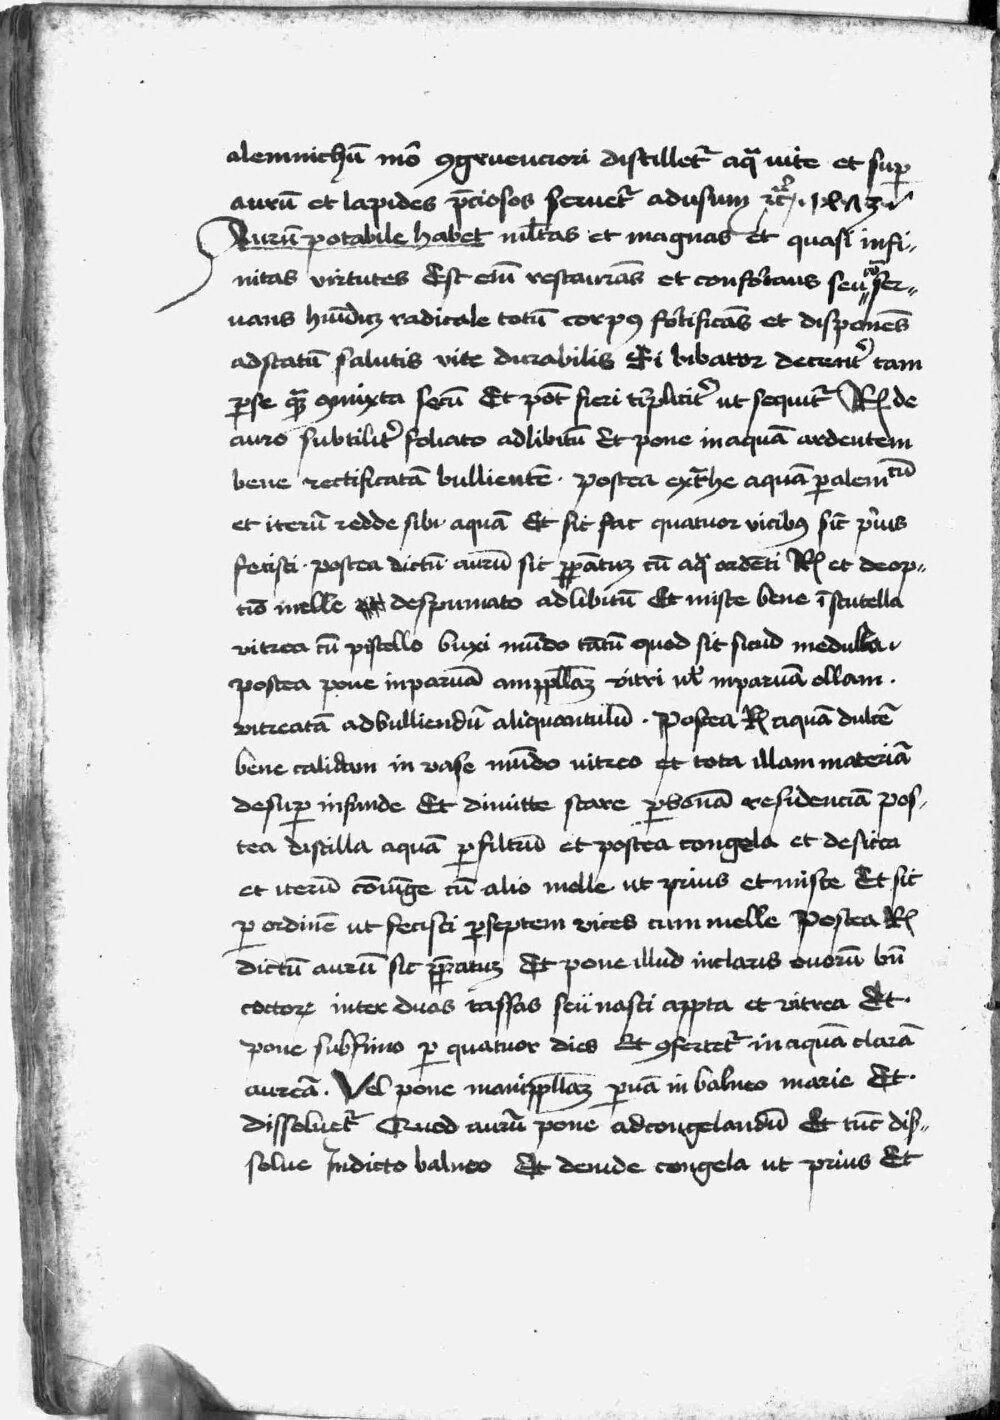 alemnichū mō ꝯgruenciori distilletᷣ aq̄ vite et suꝑ
aurū et lapides p̄ciosos seruetᷣ adusum
Aurū potabile habet ml̄tas et magnas et quasi infi-
nitas virtutes Est em̄ restaurās et confortans seu ꝯser-
uans humidū radicale totū corpꝰ fortificās et disponēs
adstatū salutis vite durabilis Et bibator decentᷣ tam
ꝑse qua ꝯmixta secū Et pōt fieri tͥplicitᷣ ut sequitᷣ ℞ de
auro subtilitᷣ foliato adlibitū Et pone inaquā ardentem
bene rectificatā bullientē · postea extͣhe aquam ꝑalemcū
et iterū redde sibi aquā Et sic fac quatuor vicibꝰ sic̄ pͥus
fecisti · postea dictū aurū sic p̄ꝑatū cū aq̄ ardēti ℞ et deop-
tīo melle despumato adlibitū Et misce bene ī scutella
vitrea cū pistello buxi mūdo tātū quod sit sicud medulla ·
postea pone inparuā ampullā vitri ul̄ inparuā ollam ·
vitreatā adbulliendū aliquantulū · Postea ℞ aquā dulcē
bene calidam in vase mūdo vitreo et tota illam materiā
desuꝑ infunde Et dimitte stare ꝑ bonā residenciam pos-
tea distilla aquā ꝑ filtrū et postea congela et desicca
et iterū cōiūge cū alio melle ut prius et misce Et sic
ꝑ ordinē ut fecisti ꝑseptem vices cum melle Postea ℞
dictū aurū sic p̄ꝑatū Et pone illud inclaris ouorū bn̄
coctorꝝ inter duas tassas seu nasci appta et vitrea Et ·
pone sub fimo ꝑ quatuor dies Et ꝯfertetᷣ in aquā clarā
aureā · Vel pone in ampullā ꝑuā in balneo marie Et ·
dissoluetᷣ Quod aurū pone adcongelandū Et tūc dis-
solue Indicto balneo Et deinde congela ut prius Et